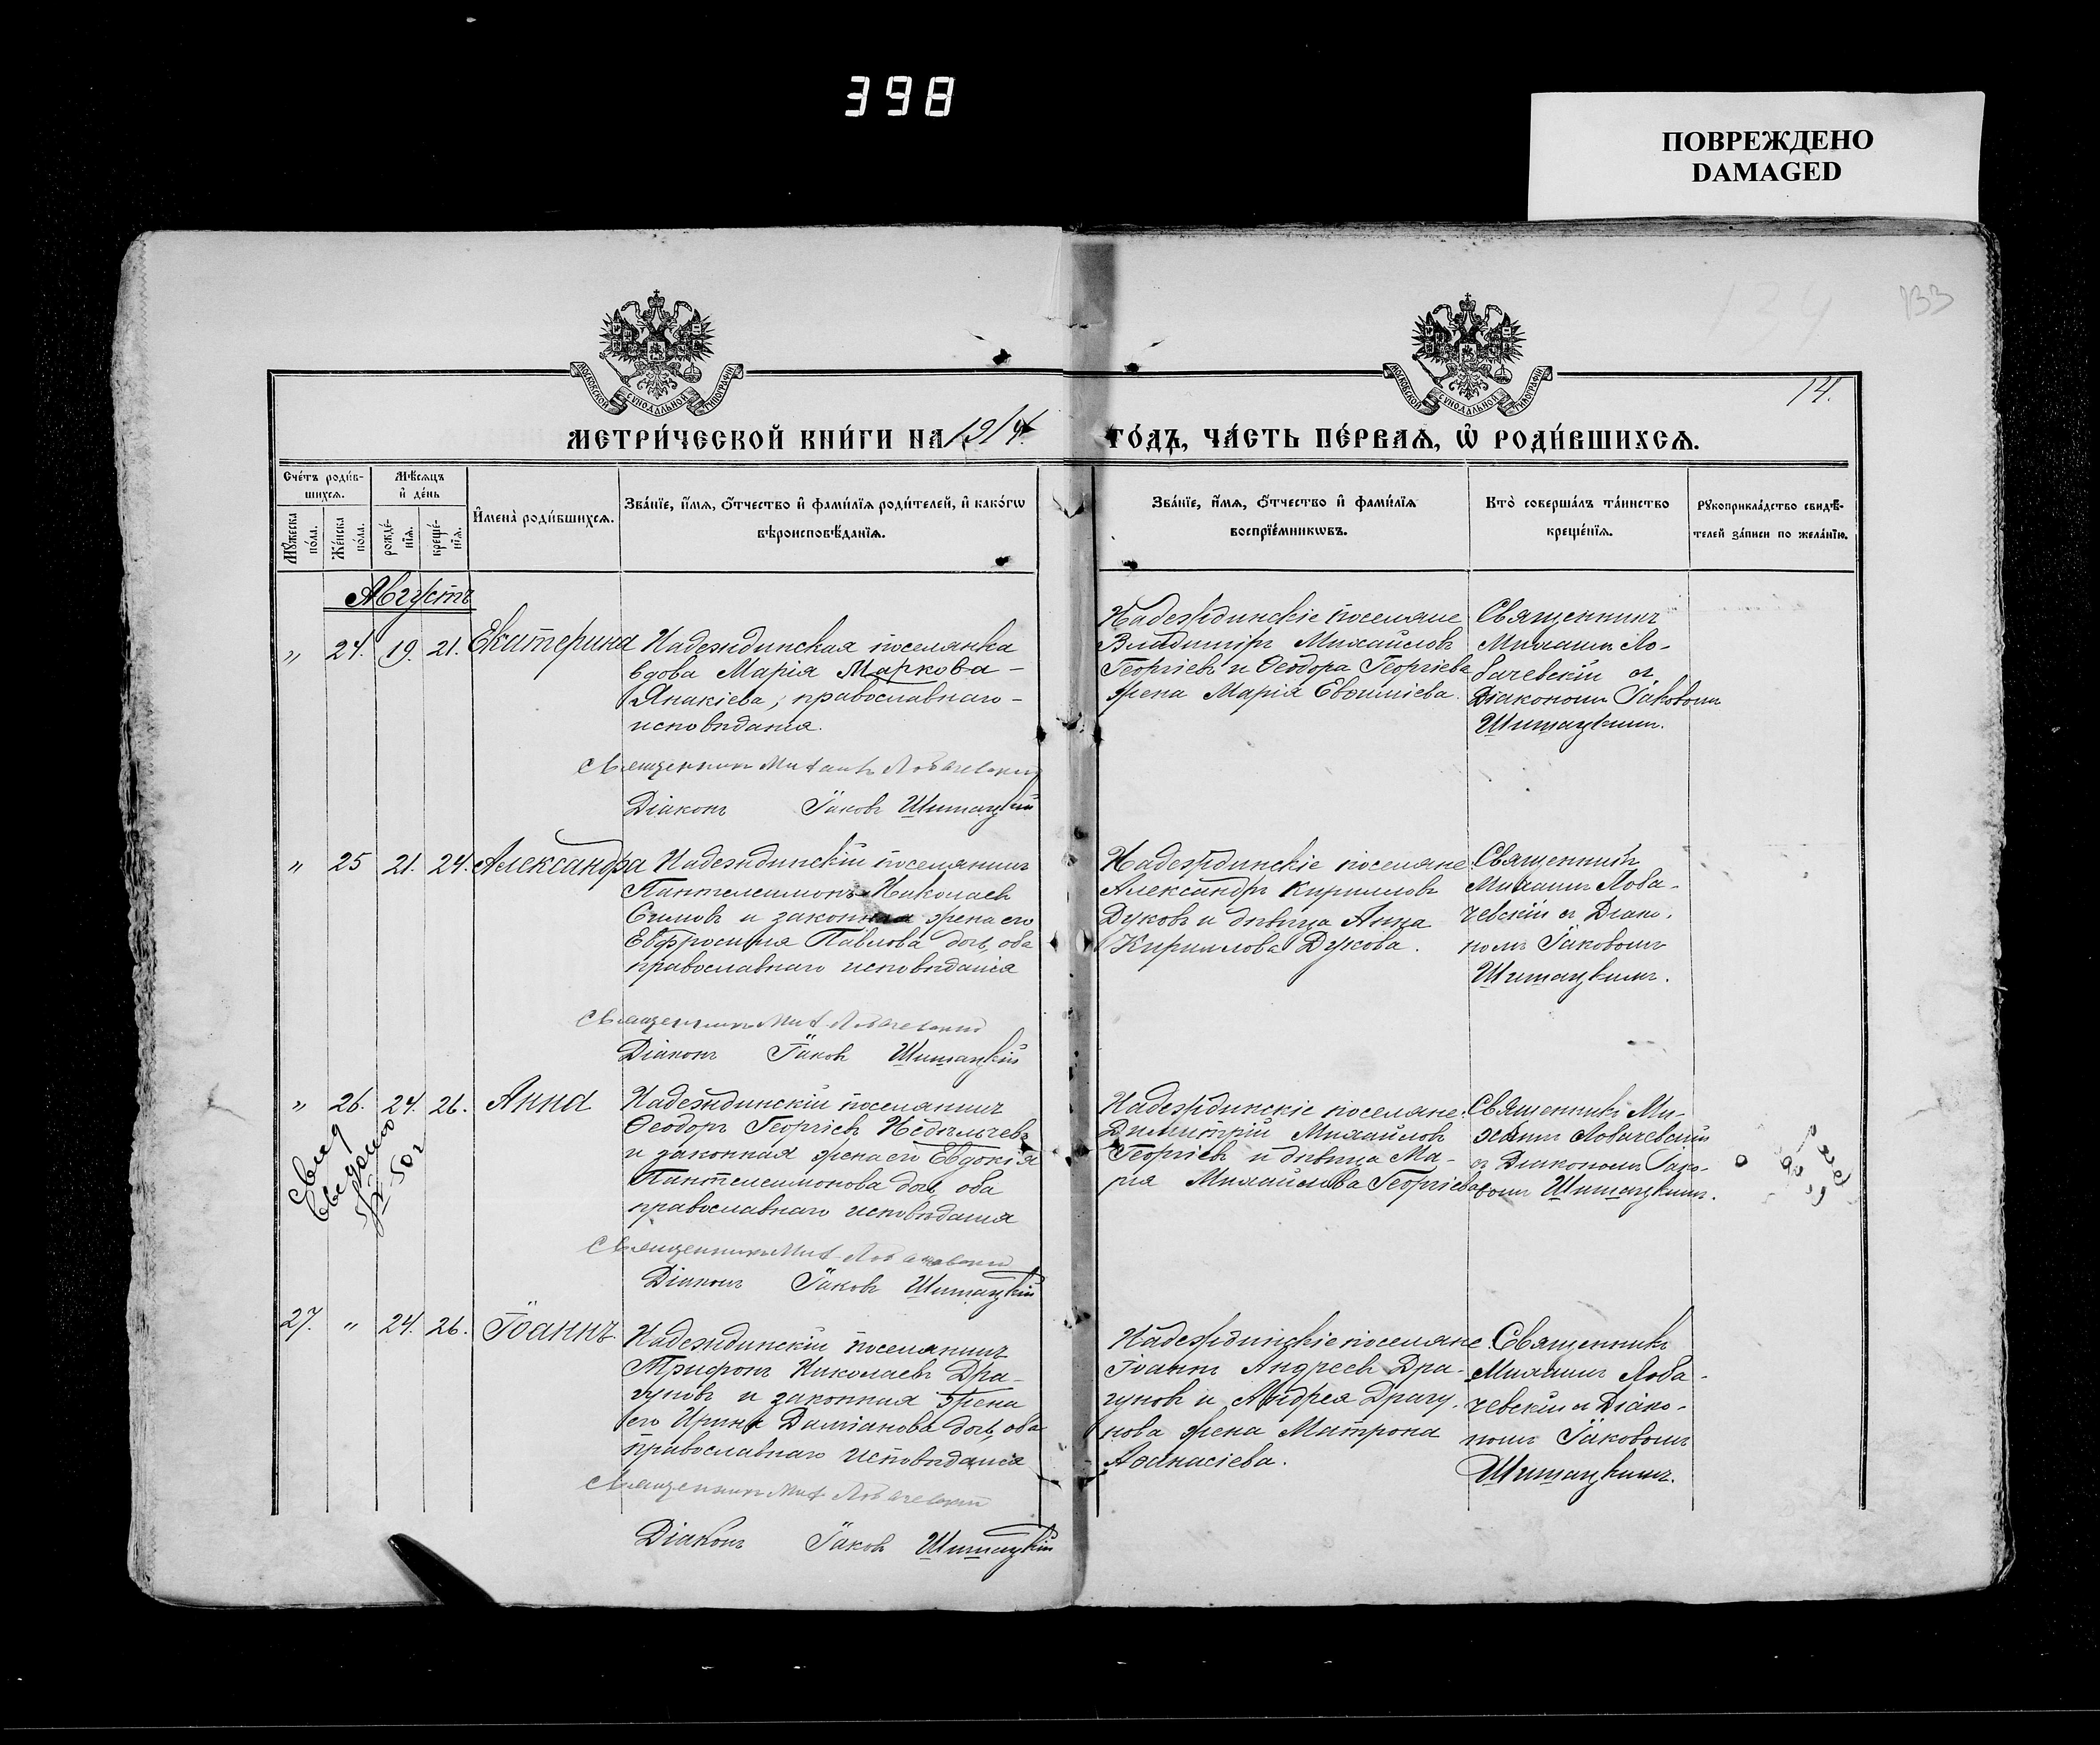 398
ПОВРЕЖДЕНО
DAMAGED
133
14.
МЕТРИ́ЧЕСКОЙ КНИ́ГИ НА 1914
ГО́ДЪ, ЧА́СТЬ ПЕ́РВАѦ, Ѡ҆ РОДИ́ВШИХСѦ.
Сче́тъ роди́в-
шихсѧ.
Мѣ́сѧцъ
и҆ де́нь
Мꙋ́жеска по́ла.
Же́нска по́ла.
рожде́-
нїѧ.
креще́-
нїѧ.
И҆мена̀ роди́вшихсѧ.
Зва́нїе, и҆́мѧ, ѻ҆́тчество и҆ фами́лїѧ роди́телей, и҆ како́гѡ
вѣроисповѣ́данїѧ.
Зва́нїе, и҆́мѧ, ѻ҆́тчество и҆ фами́лїѧ
воспрїе́мникѡвъ.
Кто̀ соверша́лъ та́инство
креще́нїѧ.
Рꙋкоприкла́дство свидѣ́-
телей за́писи по жела́нїю.
Августъ
" 24. 19. 21. Екатерина
Надеждинская поселянка
вдова Марія Маркова
Янакіева, православнаго
исповѣданія.
Священникъ Михаилъ Лобачевскій
Діаконъ Іаковъ Шишацкій
Надеждинскіе поселяне
Владиміръ Михайловъ
Георгіевъ и Ѳеодора Георгіева
жена Марія Евѳиміева.
Священникъ
Михаилъ Ло-
бачевскій съ
Діакономъ Іаковомъ
Шишацкимъ.
" 25 21. 24. Александра
Надеждинскій поселянинъ
Пантелеимонъ Николаевъ
и законная жена его
Евфросинія Павлова дочь, оба
православнаго исповѣданія
Священникъ Мих Лобачевскій
Діаконъ Іаковъ Шишацкій
Надеждинскіе поселяне
Александръ Кирилловъ
Дуковъ и дѣвица Анна
Кириллова Дукова.
Священникъ
Михаилъ Лоба-
чевскій съ Діако-
номъ Іаковомъ
Шишацкимъ.
" 26. 24. 26. Анна
Надеждинскій поселянинъ
Ѳеодоръ Георгіевъ Недѣльчевъ
и законная жена его Евдокія
Пантелеимонова дочь, оба
православнаго исповѣданія
Священникъ Мих Лобачевскій
Діаконъ Іаковъ Шишацкій
Надеждинскіе поселяне:
Димитрій Михайловъ
Георгіевъ и дѣвица Ма-
рія Михайлова Георгіева
Священникъ Ми-
хаилъ Лобачевскій
съ Діакономъ Іако-
вомъ Шишацкимъ.
27. " 24. 26. Іоаннъ
Надеждинскій поселянинъ
Трифонъ Николаевъ Дра-
гуновъ и законная жена
его Ирина Даміанова дочь, оба
православнаго исповѣданія
Священникъ Мих Лобачевскій
Діаконъ Іаковъ Шишацкій
Надеждинскіе поселяне
Іоаннъ Андреевъ Дра-
гуновъ и Андрея Драгу-
нова жена Матрона
Аѳанасіева.
Священникъ
Михаилъ Лоба-
чевскій съ Діако-
номъ Іаковомъ
Шишацкимъ.